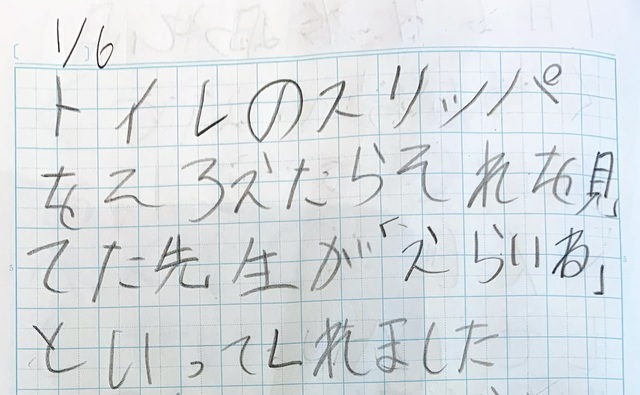 1/6
トイレのスリッパ
をそろえたらそれを見
てた先生が「えらいね」
といってくれました